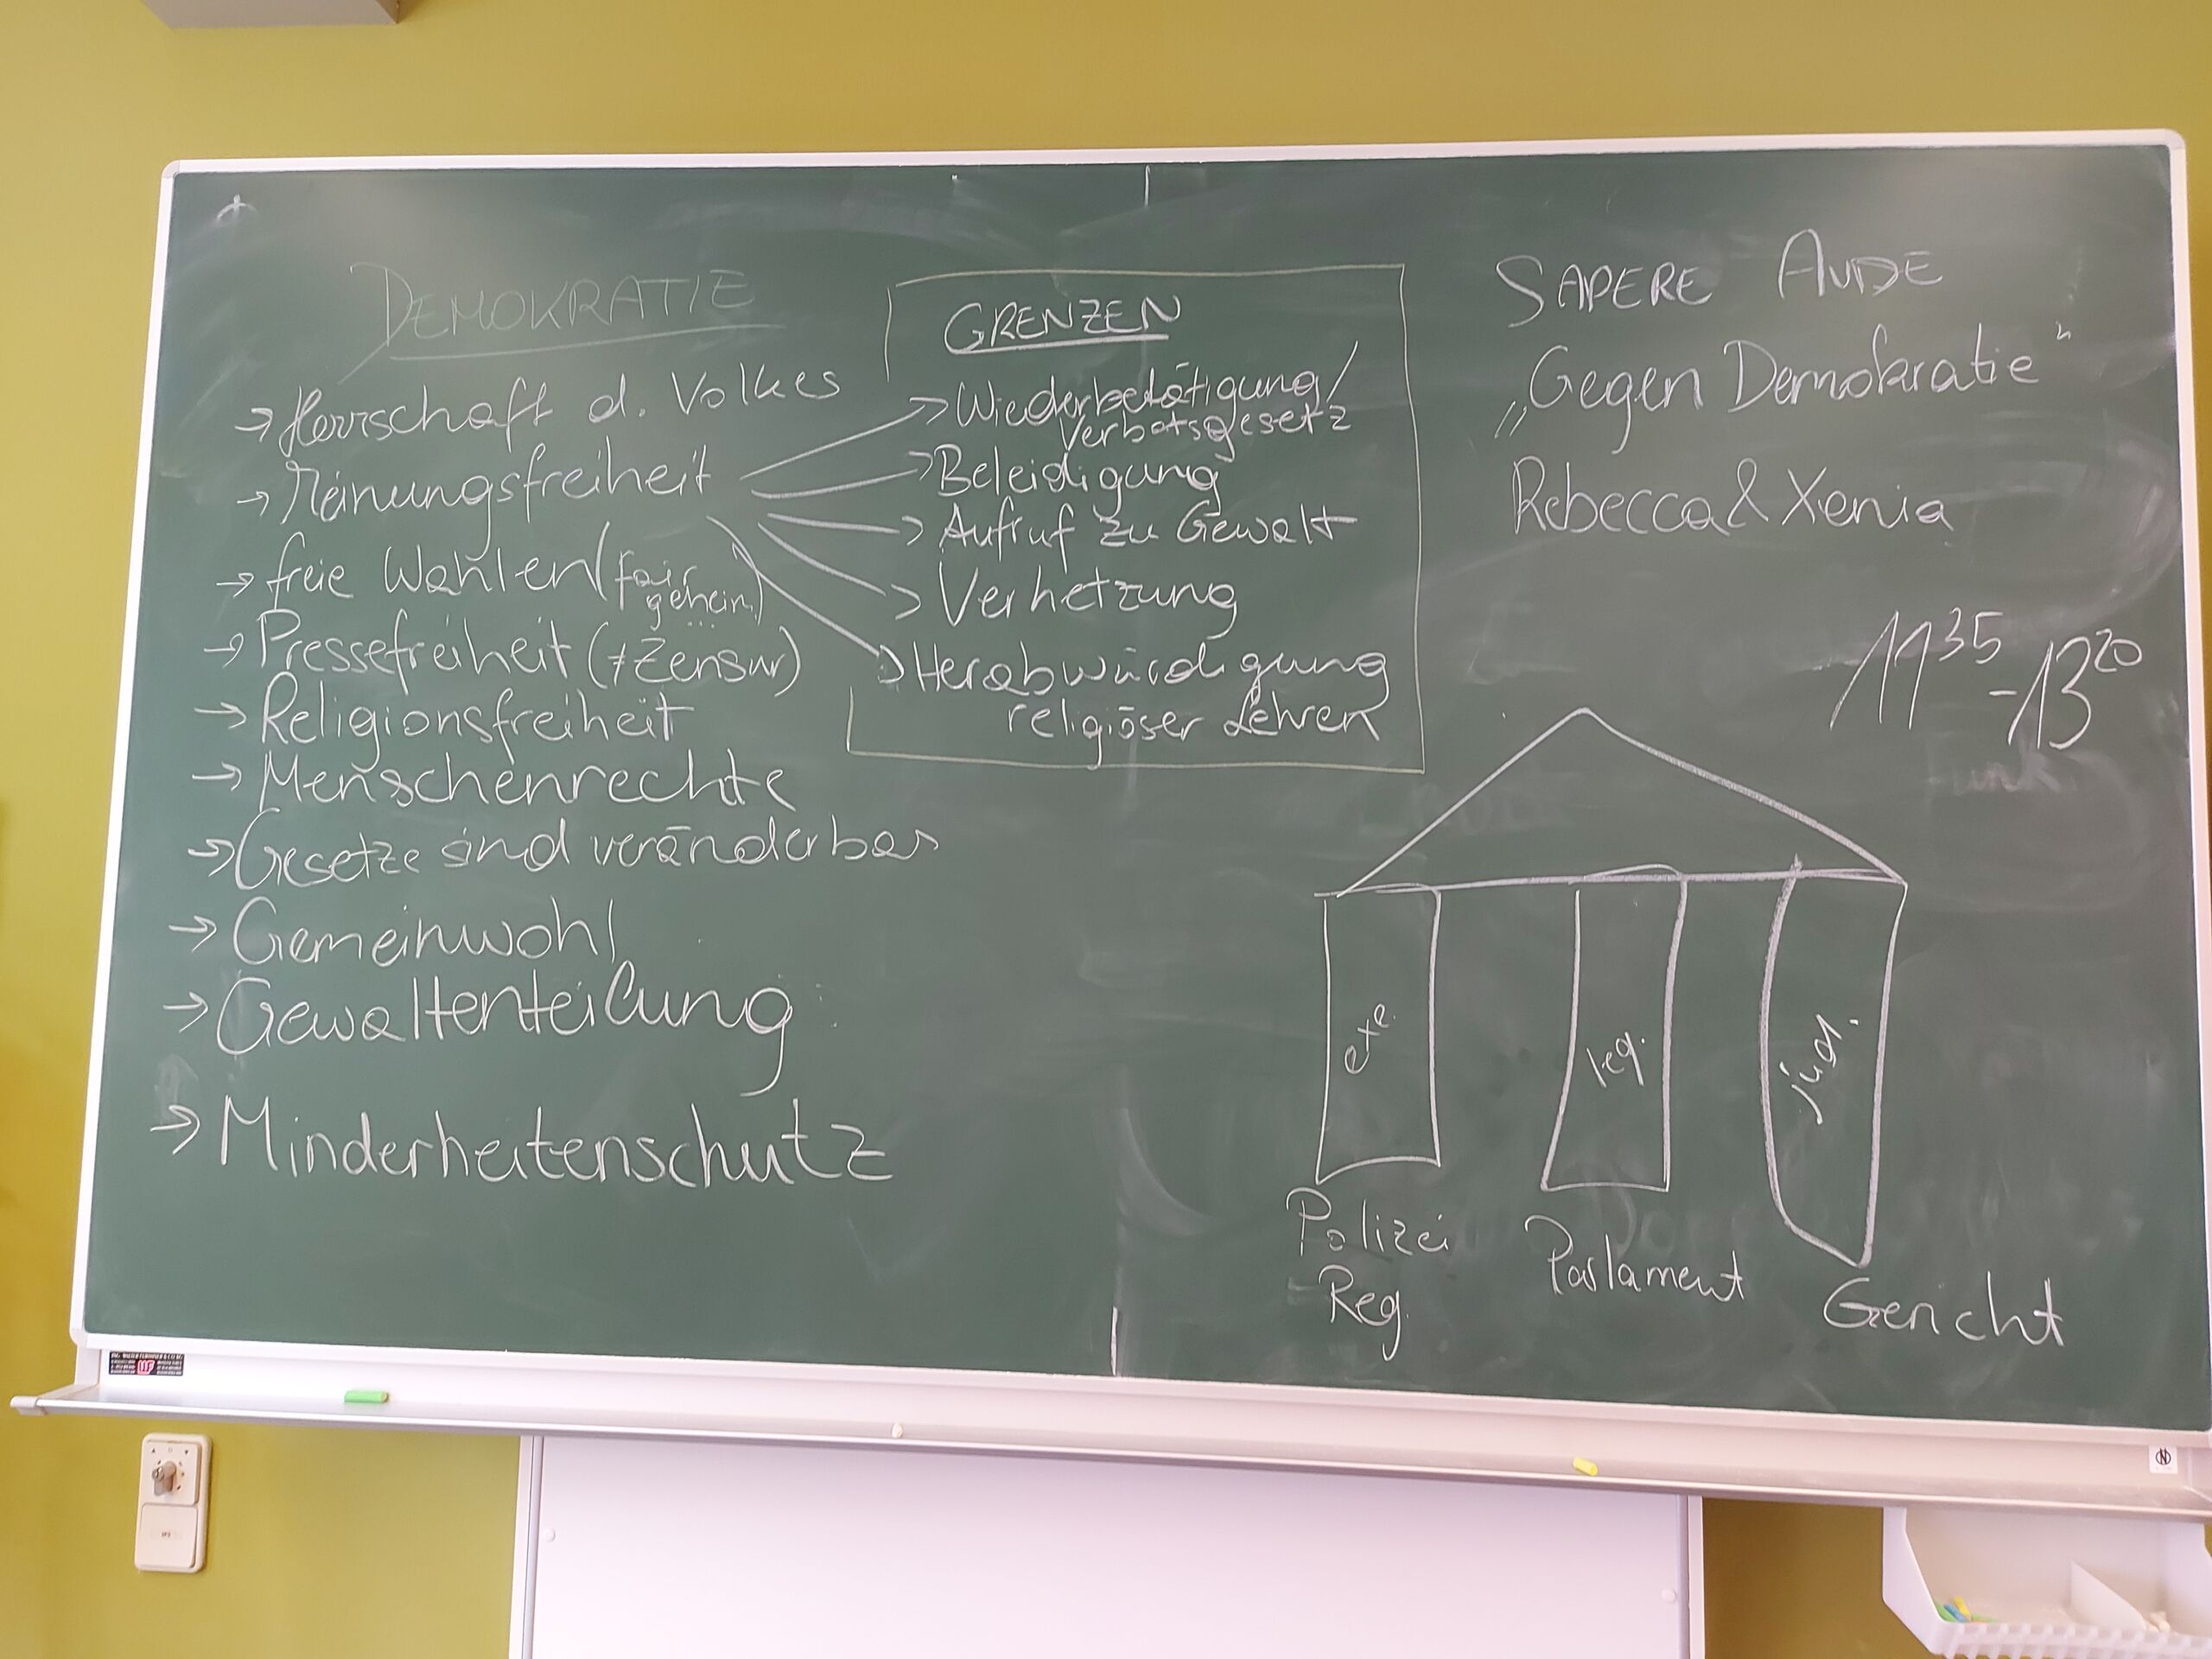 DEMOKRATIE
→ Herrschaft d. Volkes
→ Meinungsfreiheit
→ freie Wahlen (fair,
geheim, ...)
→ Pressefreiheit (≠Zensur)
→ Religionsfreiheit
→ Menschenrechte
→ Gesetze sind veränderbar
→ Gemeinwohl
→ Gewaltenteilung
→ Minderheitenschutz
GRENZEN
→ Wiederbetätigung/
Verbotsgesetz
→ Beleidigung
→ Aufruf zu Gewalt
→ Verhetzung
→ Herabwürdigung
religiöser Lehren
SAPERE AUDE
„Gegen Demokratie“
Rebecca & Xenia
11³⁵
-13²⁰
exe.
leg.
jud.
Polizei
Reg.
Parlament
Gericht